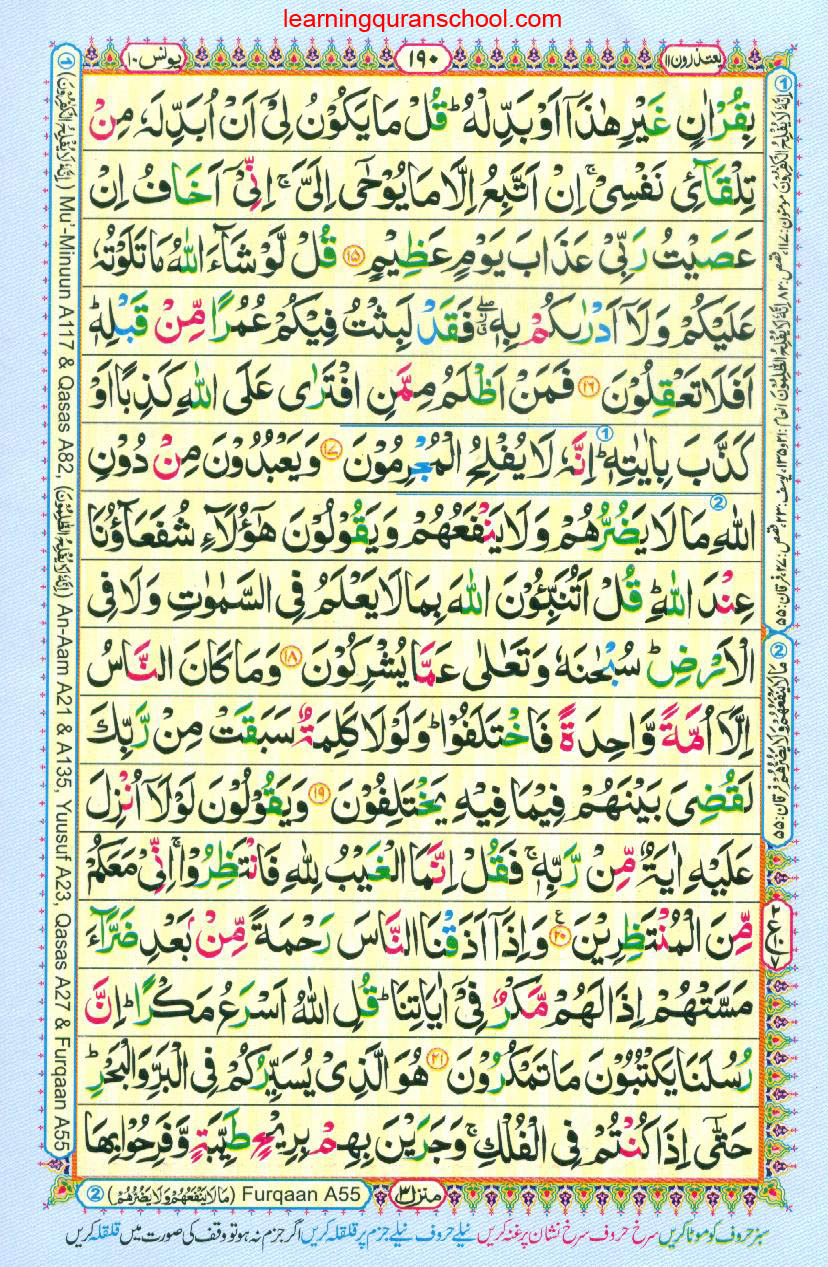 learningquranschool.com
یعتذرون ۱۱
۱۹۰
یونس ۱۰
بِقُرْاٰنٍ غَیْرِ هٰذَاۤ اَوْ بَدِّلْهُ ؕ قُلْ مَا یَكُوْنُ لِیْۤ اَنْ اُبَدِّلَهٗ مِنْ
تِلْقَآئِ نَفْسِیْ ۚ اِنْ اَتَّبِعُ اِلَّا مَا یُوْحٰۤی اِلَیَّ ۚ اِنِّیْۤ اَخَافُ اِنْ
عَصَیْتُ رَبِّیْ عَذَابَ یَوْمٍ عَظِیْمٍ ۝۱۵ قُلْ لَّوْ شَآءَ اللّٰهُ مَا تَلَوْتُهٗ
عَلَیْكُمْ وَ لَاۤ اَدْرٰىكُمْ بِهٖ ۖؗ فَقَدْ لَبِثْتُ فِیْكُمْ عُمُرًا مِّنْ قَبْلِهٖ ؕ
اَفَلَا تَعْقِلُوْنَ ۝۱۶ فَمَنْ اَظْلَمُ مِمَّنِ افْتَرٰی عَلَی اللّٰهِ كَذِبًا اَوْ
كَذَّبَ بِاٰیٰتِهٖ ؕ اِنَّهٗ لَا یُفْلِحُ الْمُجْرِمُوْنَ ۝۱۷ وَ یَعْبُدُوْنَ مِنْ دُوْنِ
اللّٰهِ مَا لَا یَضُرُّهُمْ وَ لَا یَنْفَعُهُمْ وَ یَقُوْلُوْنَ هٰۤؤُلَآءِ شُفَعَآؤُنَا
عِنْدَ اللّٰهِ ؕ قُلْ اَتُنَبِّئُوْنَ اللّٰهَ بِمَا لَا یَعْلَمُ فِی السَّمٰوٰتِ وَ لَا فِی
الْاَرْضِ ؕ سُبْحٰنَهٗ وَ تَعٰلٰی عَمَّا یُشْرِكُوْنَ ۝۱۸ وَ مَا كَانَ النَّاسُ
اِلَّاۤ اُمَّةً وَّاحِدَةً فَاخْتَلَفُوْا ؕ وَ لَوْ لَا كَلِمَةٌ سَبَقَتْ مِنْ رَّبِّكَ
لَقُضِیَ بَیْنَهُمْ فِیْمَا فِیْهِ یَخْتَلِفُوْنَ ۝۱۹ وَ یَقُوْلُوْنَ لَوْ لَاۤ اُنْزِلَ
عَلَیْهِ اٰیَةٌ مِّنْ رَّبِّهٖ ۚ فَقُلْ اِنَّمَا الْغَیْبُ لِلّٰهِ فَانْتَظِرُوْا ۚ اِنِّیْ مَعَكُمْ
مِّنَ الْمُنْتَظِرِیْنَ ۝۲۰ وَ اِذَاۤ اَذَقْنَا النَّاسَ رَحْمَةً مِّنْۢ بَعْدِ ضَرَّآءَ
مَسَّتْهُمْ اِذَا لَهُمْ مَّكْرٌ فِیْۤ اٰیَاتِنَا ؕ قُلِ اللّٰهُ اَسْرَعُ مَكْرًا ؕ اِنَّ
رُسُلَنَا یَكْتُبُوْنَ مَا تَمْكُرُوْنَ ۝۲۱ هُوَ الَّذِیْ یُسَیِّرُكُمْ فِی الْبَرِّ وَ الْبَحْرِ ؕ
حَتّٰۤی اِذَا كُنْتُمْ فِی الْفُلْكِ ۚ وَ جَرَیْنَ بِهِمْ بِرِیْحٍ طَیِّبَةٍ وَّ فَرِحُوْا بِهَا
① (اِنَّهٗ لَا یُفْلِحُ الْكٰفِرُوْنَ) Mu'-Minuun A117 & Qasas A82, (اِنَّهٗ لَا یُفْلِحُ الظّٰلِمُوْنَ) An-Aam A21 & A135, Yuusuf A23, Qasas A27 & Furqaan A55
② مَا لَا یَنْفَعُهُمْ وَ لَا یَضُرُّهُمْ فرقان: ۵۵
② (مَا لَا یَنْفَعُهُمْ وَ لَا یَضُرُّهُمْ) Furqaan A55
منزل ۳
سبز حروف کو موٹا کریں سرخ حروف سرخ نشان پر غنہ کریں نیلے حروف نیلے جزم پر قلقلہ کریں اگر جزم نہ ہو تو وقف کی صورت میں قلقلہ کریں